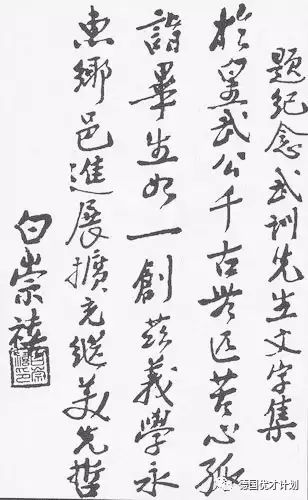 題紀念武訓先生文字集
於皇武公千古無匹苦心孤
詣畢生如一創茲義學永
惠鄉邑進展擴充繼美先哲
白崇禧
白崇禧印
德国优才计划